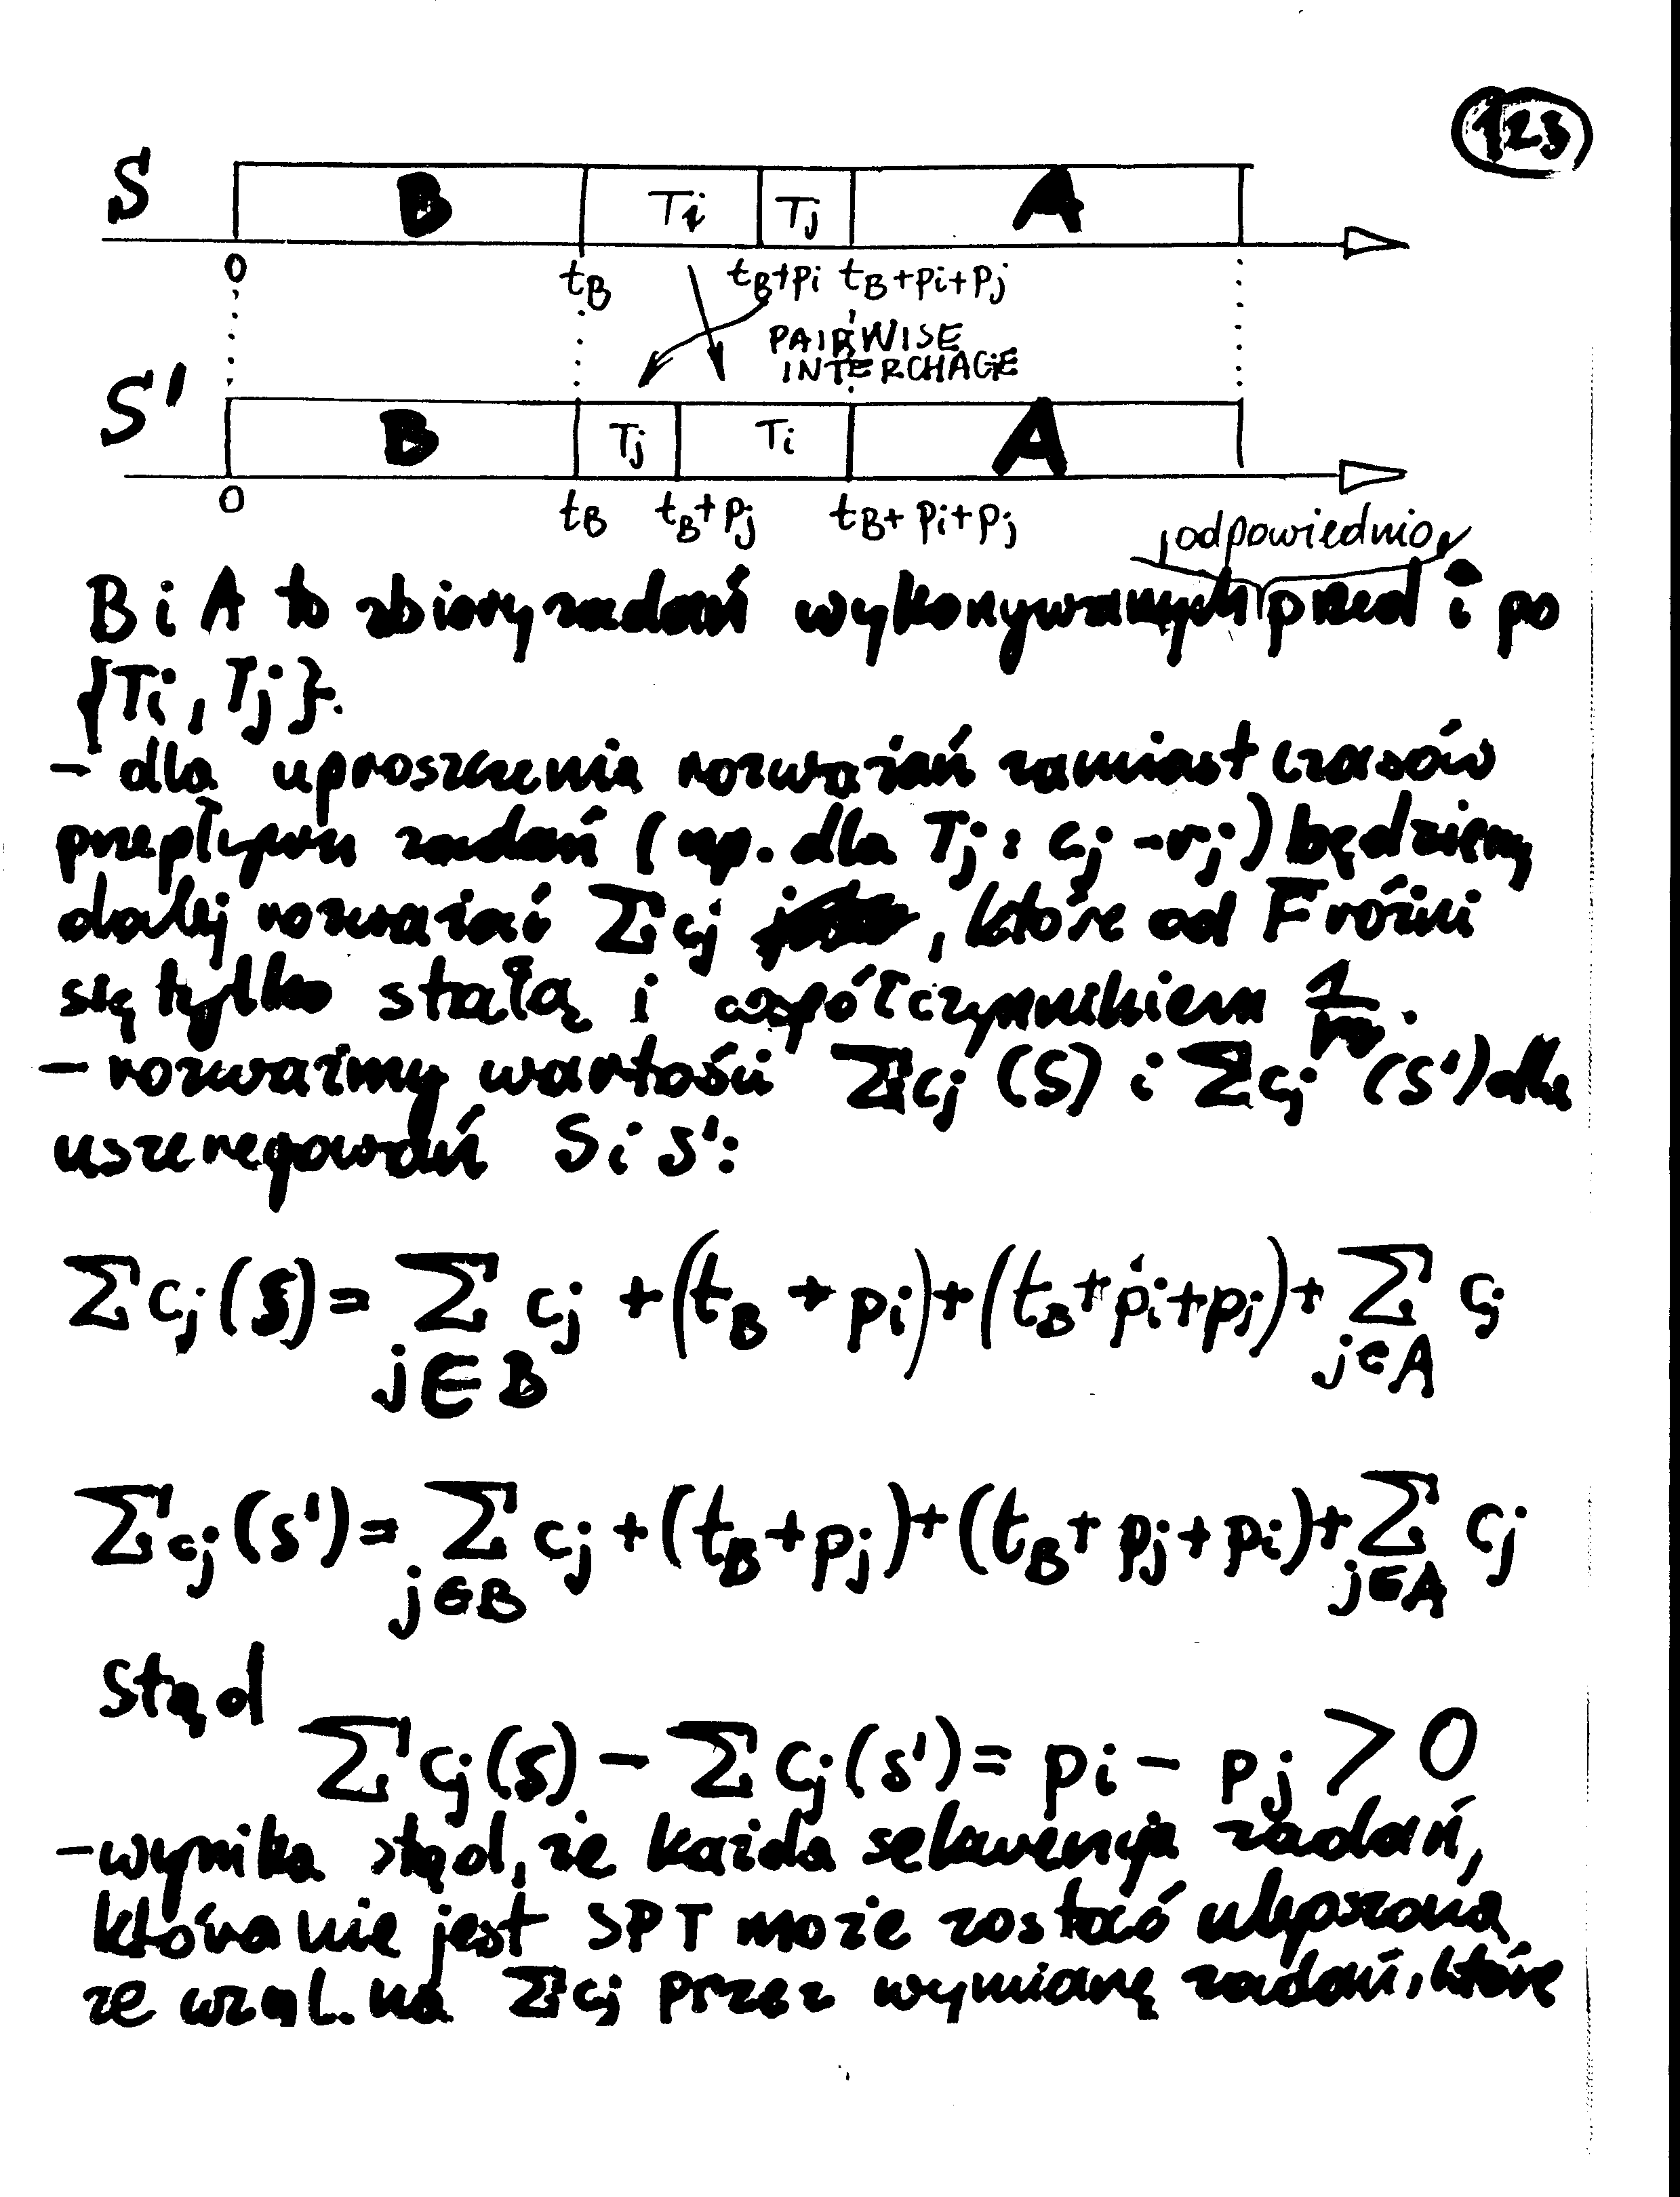 123
S B Ti Tj A
0 tB tB+pi tB+pi+pj
PAIRWISE
INTERCHAGE
S' B Tj Ti A
0 tB tB+pj tB+pi+pj
odpowiednio
B i A to zbiory zadań wykonywanych przed i po
{Ti, Tj}.
- dla uproszczenia rozważań zamiast czasów
przepływu zadań (np. dla Tj: cj - rj) będziemy
dalej rozważać Σcj , które od F różni
się tylko stałą i współczynnikiem 1/n.
- rozważmy wartości Σcj (S) i Σcj (S') dla
uszeregowań S i S':
Σcj(S) = Σ cj + (tB + pi) + (tB + pi + pj) + Σ cj
j∈B j∈A
Σcj(S') = Σ cj + (tB + pj) + (tB + pj + pi) + Σ cj
j∈B j∈A
stąd
Σcj(S) - Σcj(S') = pi - pj > 0
- wynika stąd, że każda sekwencja zadań,
która nie jest SPT może zostać ulepszona
ze wzgl. na Σcj przez wymianę zadań, które